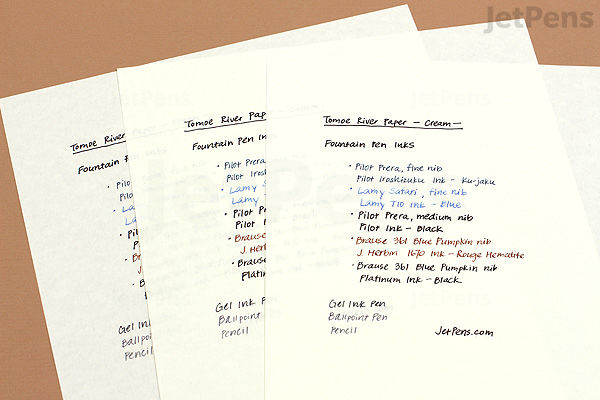 JetPens
Tomoe River
Fountain P
• Pilo
Pilo
• La
La
• Pi
Pi
• Br
J.
• Br
Pl
Gel Ink
Ballpoi
Pencil
Tomoe River Pap
Fountain Pen In
• Pilot Prera
Pilot Irosh
• Lamy S
Lamy
• Pilot P
Pilot
• Brause
J. Herb
• Braus
Platin
Gel Ink P
Ballpoint
Pencil
Tomoe River Paper - Cream -
Fountain Pen Inks
• Pilot Prera, fine nib
Pilot Iroshizuku Ink - Ku-jaku
• Lamy Safari, fine nib
Lamy T10 Ink - Blue
• Pilot Prera, medium nib
Pilot Ink - Black
• Brause 361 Blue Pumpkin nib
J. Herbin 1670 Ink - Rouge Hematite
• Brause 361 Blue Pumpkin nib
Platinum Ink - Black
Gel Ink Pen
Ballpoint Pen
Pencil
JetPens.com